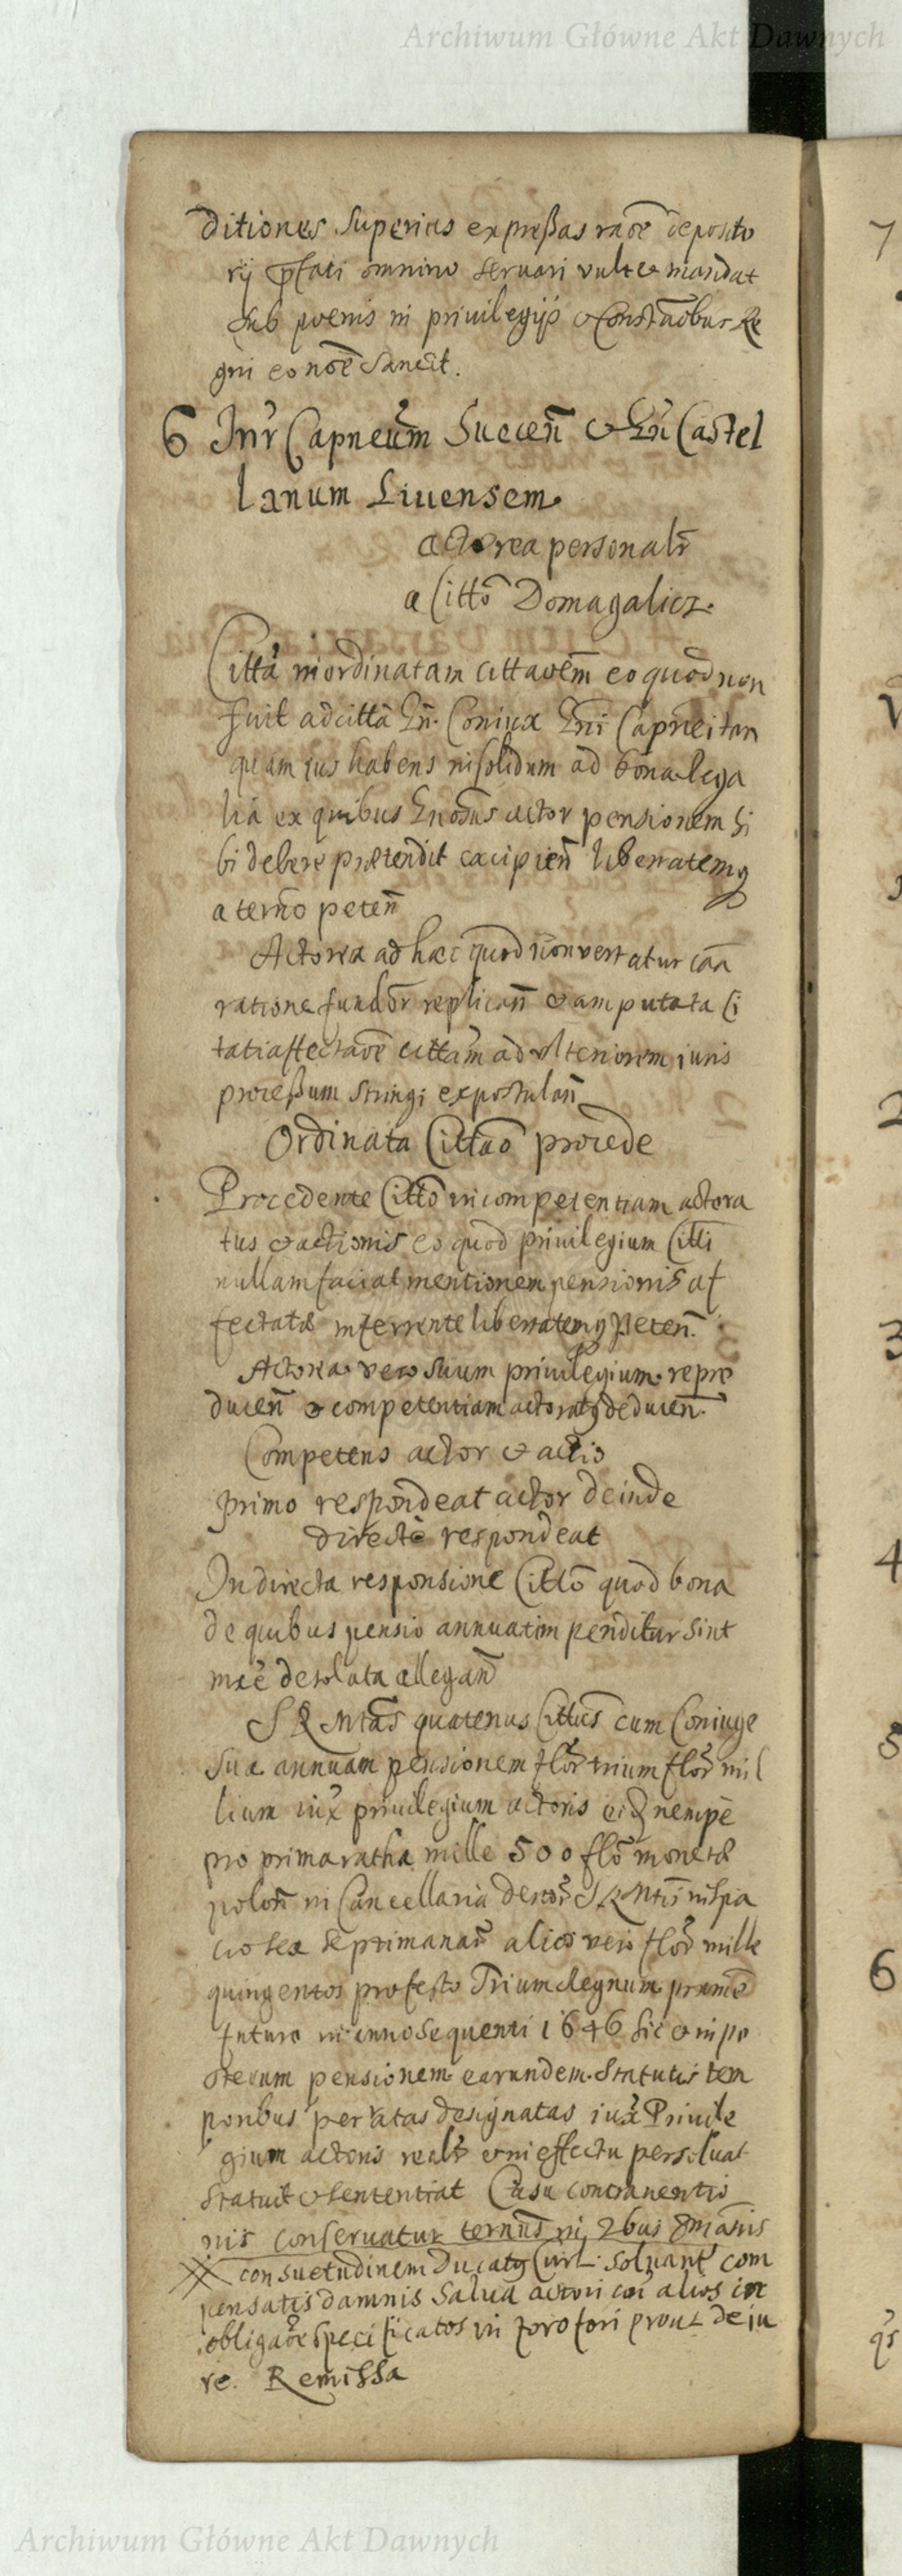 Archiwum Główne Akt Dawnych
ditiones superius expressas raõe deposito
rij omnino seruari vult & mandat
sub poenis in privilegijs & Constãobus Re
gni eo noĩe Sancit.
6 Inr Capneum Suecen̄ & Gn̄ Castel
lanum Liuensem
actorea personalr̄
a Citto Domagalicz.
Citta inordinatam cittaoēm eo quod non
fuit adcitta Gn̄. Coniux Gn̄i Capnei tan
quam ius habens in solidum ad bona rega
lia ex quibus actor pensionem si
bi debere prætendit excipien̄ liberratemq
a termo peten̄
Actorea ad hæc quod convertatur cãa
ratione fundor replican̄ & amputata Ci
tati affectaõe cittam ad vlteriorem iuris
processum stringi expostulan̄
Ordinata Cittaõ procede
Procedente Citto incompetentiam actora
tus & actionis eo quod privilegium Citti
nullam faciat mentionem pensionis af
fectatæ inferrente liberratemq Peten̄.
Actorea vero suum privilegium repro
ducen̄ & competentiam actoratg deducen̄.
Competens actor & actio
primo respondeat actor deinde
directe respondeat
In directa responsione Citto quod bona
de quibus pensio annuatim penditur sint
desolata allegan̄
S R Mtas quatenus Cittus cum Coniuge
sua annuam pensionem flor trium flor mil
lium iux privilegium actoris nempe
pro prima ratha mille 500 flo monetæ
polon̄ in Cancellaria S R Mtis in spa
cio sex septimanar̄ alios vero flor mille
quingentos pro festo Trium Regnum proxime
futuro in anno sequenti 1646 sic & in po
sterum pensionem earundem statutis tem
poribus per ratas designatas iux Privile
gium actoris realr & in effectu persoluat
statuit & sententiat Casu contraventio
nis conservatur terms in 2bus 8manis
consuetudinem Ducatg soluant com
pensatis damnis salua actori alios
obligaõe specificatos in foro fori prout de iu
re. Remissa
7
2
3
4
5
6
Archiwum Główne Akt Dawnych